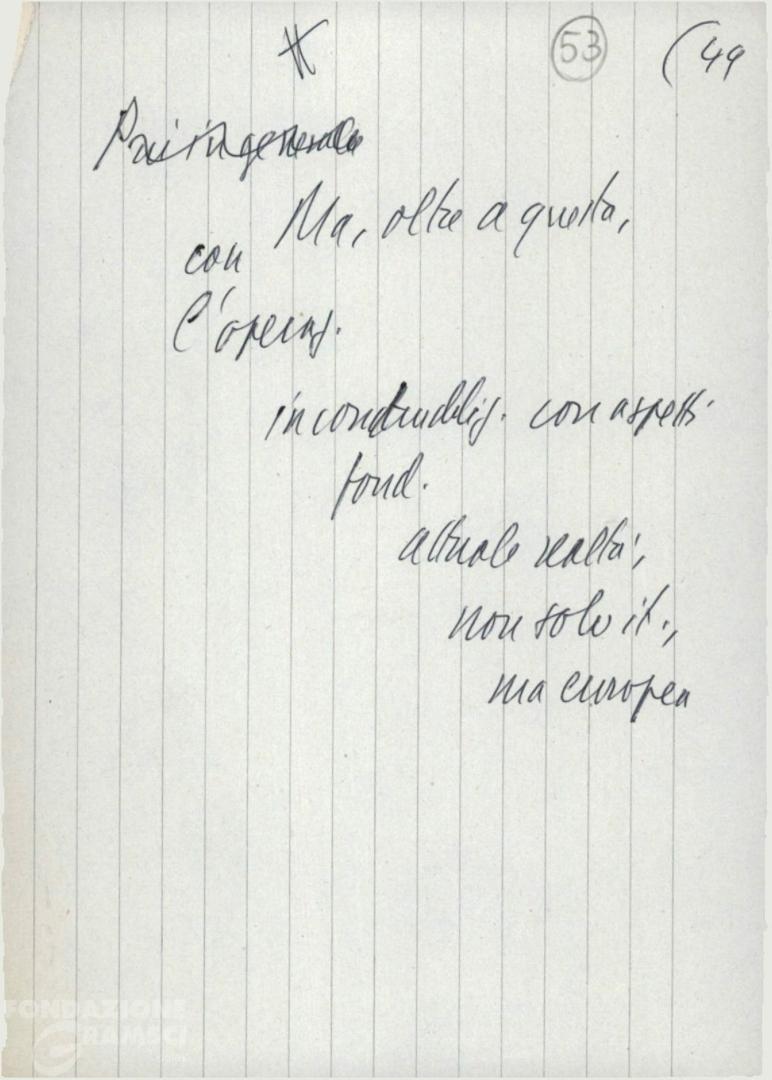 53 (49
Più in generale
Ma, oltre a questa,
con
l'operaz.
con aspetti
fond.
attuale realtà,
non solo it.,
ma europea
FONDAZIONE
GRAMSCI